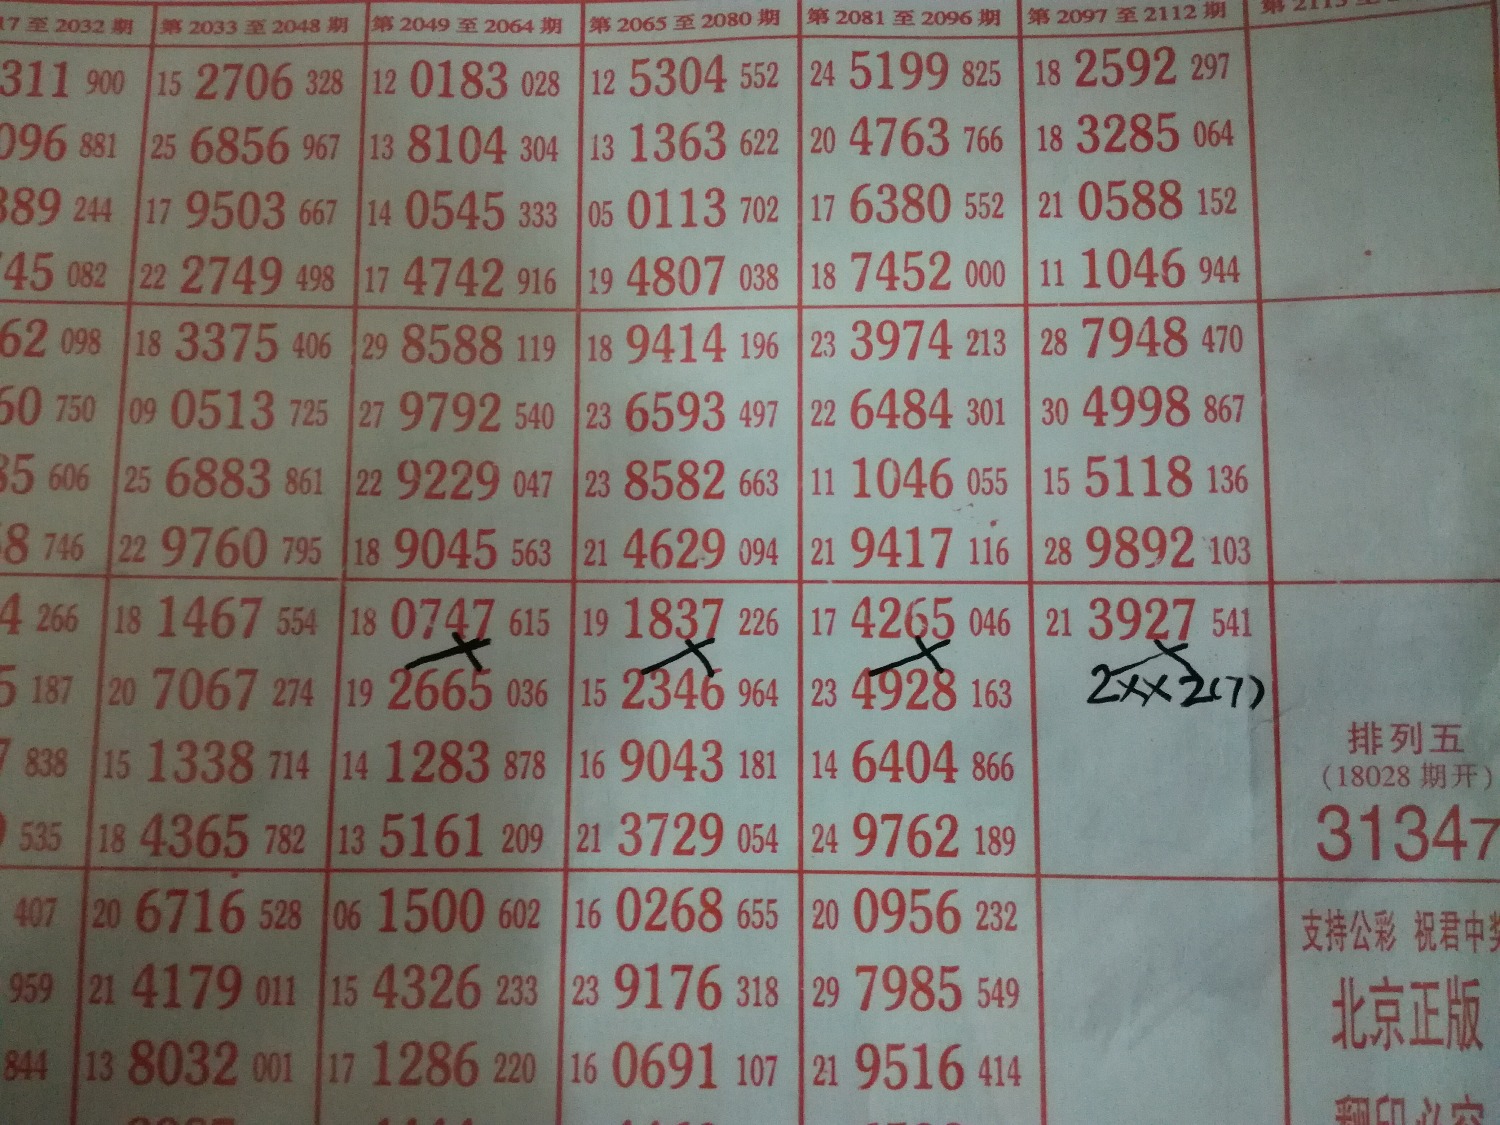 17 至 2032 期 第 2033 至 2048 期 第 2049 至 2064 期 第 2065 至 2080 期 第 2081 至 2096 期 第 2097 至 2112 期
311 900 15 2706 328 12 0183 028 12 5304 552 24 5199 825 18 2592 297
096 881 25 6856 967 13 8104 304 13 1363 622 20 4763 766 18 3285 064
389 244 17 9503 667 14 0545 333 05 0113 702 17 6380 552 21 0588 152
745 082 22 2749 498 17 4742 916 19 4807 038 18 7452 000 11 1046 944
62 098 18 3375 406 29 8588 119 18 9414 196 23 3974 213 28 7948 470
60 750 09 0513 725 27 9792 540 23 6593 497 22 6484 301 30 4998 867
35 606 25 6883 861 22 9229 047 23 8582 663 11 1046 055 15 5118 136
8 746 22 9760 795 18 9045 563 21 4629 094 21 9417 116 28 9892 103
4 266 18 1467 554 18 0747 615 19 1837 226 17 4265 046 21 3927 541
5 187 20 7067 274 19 2665 036 15 2346 964 23 4928 163 2××2(7)
7 838 15 1338 714 14 1283 878 16 9043 181 14 6404 866
535 18 4365 782 13 5161 209 21 3729 054 24 9762 189
407 20 6716 528 06 1500 602 16 0268 655 20 0956 232
959 21 4179 011 15 4326 233 23 9176 318 29 7985 549
844 13 8032 001 17 1286 220 16 0691 107 21 9516 414
排列五
(18028 期开)
31347
支持公彩 祝君中奖
北京正版
翻印必究